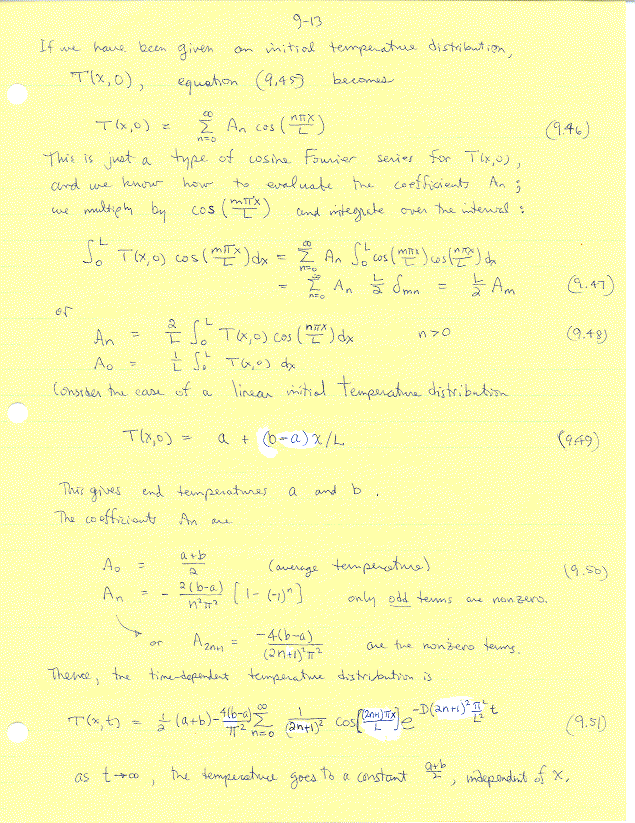 9-13
If we have been given an initial temperature distribution,
T(x,0), equation (9.45) becomes
T(x,0) = ∑_{n=0}^{∞} An cos(nπx/L) (9.46)
This is just a type of cosine Fourier series for T(x,0),
and we know how to evaluate the coefficients An;
we multiply by cos(mπx/L) and integrate over the interval:
∫_0^L T(x,0) cos(mπx/L) dx = ∑_{n=0}^{∞} An ∫_0^L cos(mπx/L) cos(nπx/L) dx
= ∑_{n=0}^{∞} An L/2 δmn = L/2 Am (9.47)
or
An = 2/L ∫_0^L T(x,0) cos(nπx/L) dx n>0 (9.48)
A0 = 1/L ∫_0^L T(x,0) dx
Consider the case of a linear initial temperature distribution
T(x,0) = a + (b-a)x/L (9.49)
This gives end temperatures a and b.
The coefficients An are
A0 = (a+b)/2 (average temperature) (9.50)
An = - 2(b-a)/(n²π²) [1-(-1)^n] only odd terms are nonzero.
or A2n+1 = -4(b-a)/((2n+1)²π²) are the nonzero terms.
Thence, the time-dependent temperature distribution is
T(x,t) = ½(a+b) - 4(b-a)/π² ∑_{n=0}^{∞} 1/(2n+1)² cos[(2n+1)πx/L] e^{-D(2n+1)² π²/L² t} (9.51)
as t→∞, the temperature goes to a constant (a+b)/2, independent of x.